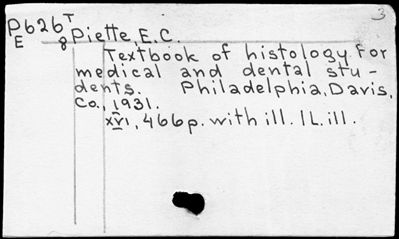 3
P626T Piette, E.C.
E 8
Textbook of histology for
medical and dental stu-
dents. Philadelphia, Davis,
Co., 1931.
xvi, 466p. with ill. 1L. ill.